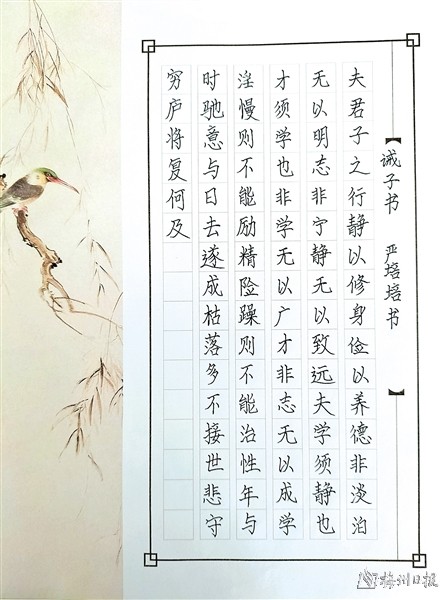 【诫子书 严培培书】
夫君子之行静以修身俭以养德非淡泊
无以明志非宁静无以致远夫学须静也
才须学也非学无以广才非志无以成学
淫慢则不能励精险躁则不能治性年与
时驰意与日去遂成枯落多不接世悲守
穷庐将复何及
梅州日报